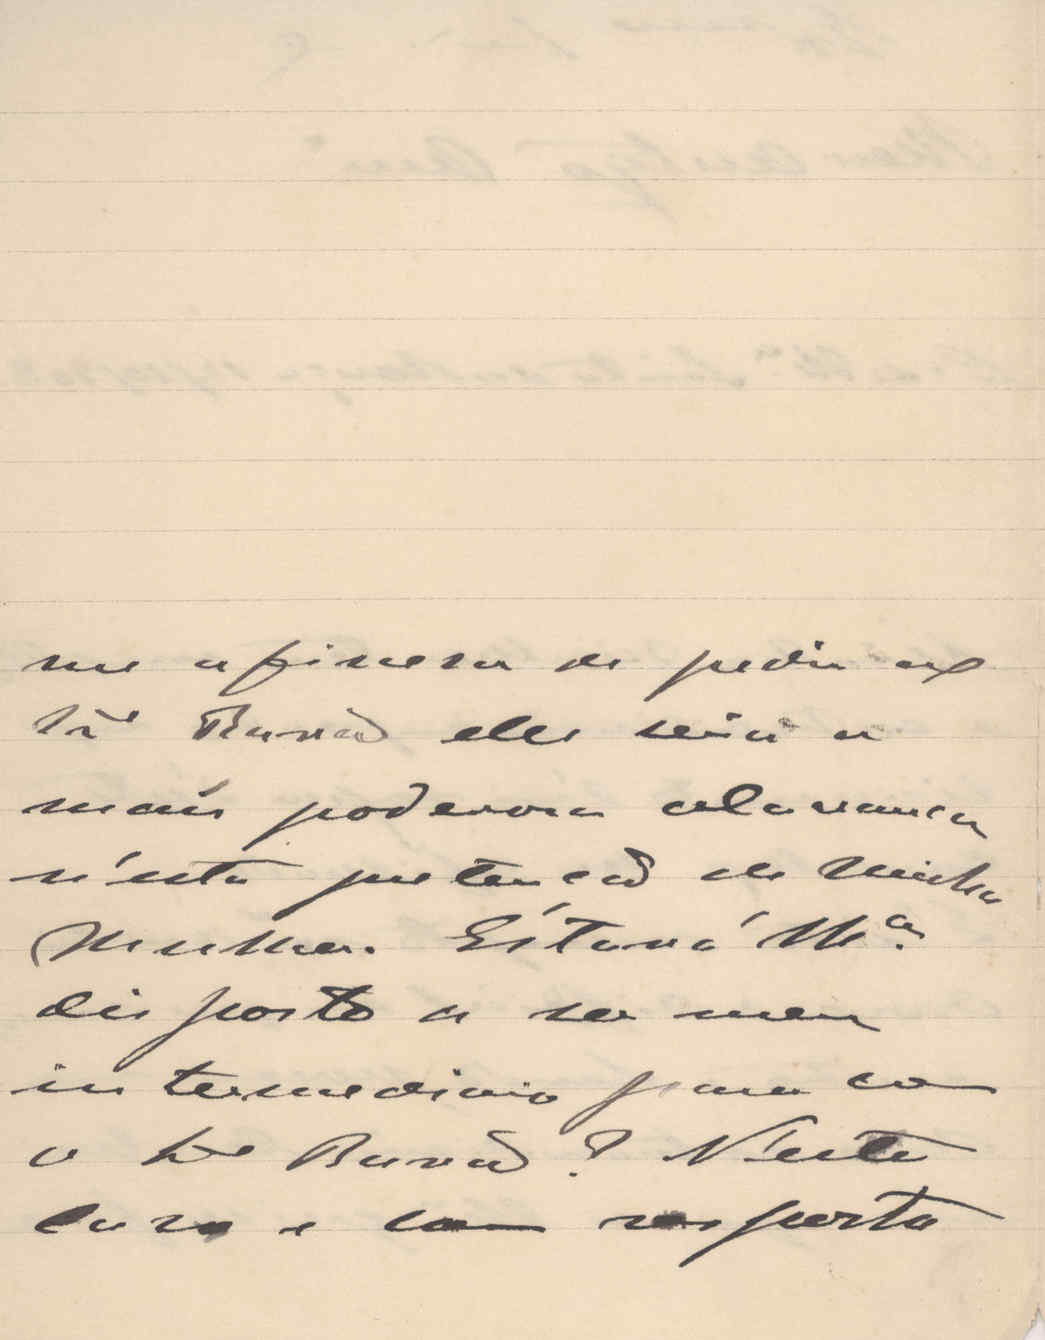 me a fineza de pedir ao
Sr Barão elle seria a
mais poderosa alavanca
n'esta pretenção de Minha
Mulher. Estará V. Mª.
disposto a ser meu
intermediario para com
o Sr Barão? N'este
caso e com resposta